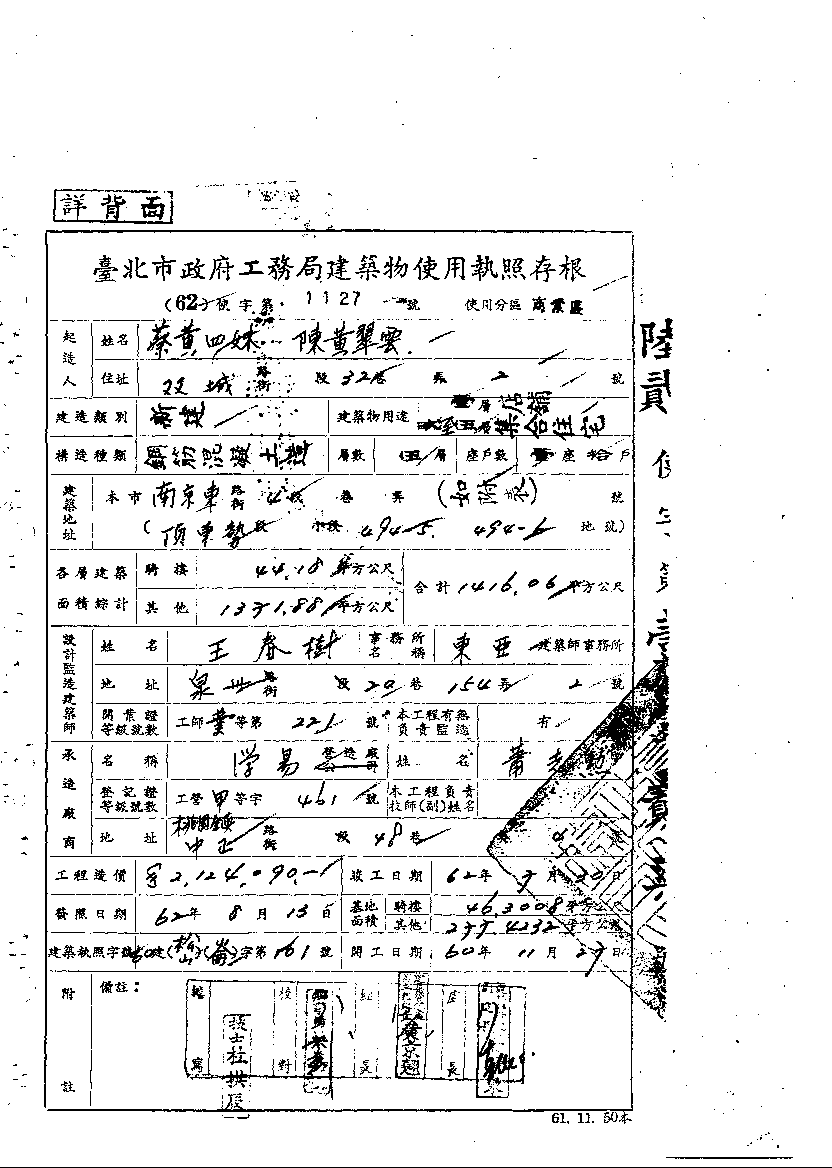 詳背面
臺北市政府工務局建築物使用執照存根
(62)使字第 1127 號 使用分區 商業區
起造人 姓名 蔡黃四妹 陳黃翠雲
住址 双城 路街 段 32巷 弄 2 號
建造類別 新建 建築物用途 壹層店舖 集合住宅
構造種類 鋼筋混凝土造 層數 四層 座戶數 壹座拾戶
建築地址 本市 南京東 路街 4段 巷 弄 (如附表) 號
(頂東勢段 小段 494-5. 494-6 地號)
各層建築面積綜計 騎樓 44.18 平方公尺 合計 1416.06 平方公尺
其他 1371.88 平方公尺
設計監造建築師 姓名 王春樹 事務所名稱 東亞 建築師事務所
地址 泉州 路街 段 20 巷 154 弄 2 號
開業證等級號數 工師 等第 221 號 本工程有無負責監造 有
承造廠商 名稱 學易 營造廠 姓名 蕭
登記證等級號數 工營 甲 等字 461 號 本工程負責技師(副)姓名
地址 中正 路街 段 48 巷 4 號
工程造價 2,124,090.- 竣工日期 62年 7月 30日
發照日期 62年 8月 13日 基地面積 騎樓 46.3008 平方公尺
其他 277.4232 平方公尺
建築執照字號 60建(松山)(崙)字第 161 號 開工日期 60年 11月 27日
附註 備註:
繕寫 校對 組長 股長
技士杜拱辰
61. 11. 50本
陸貳使字第壹